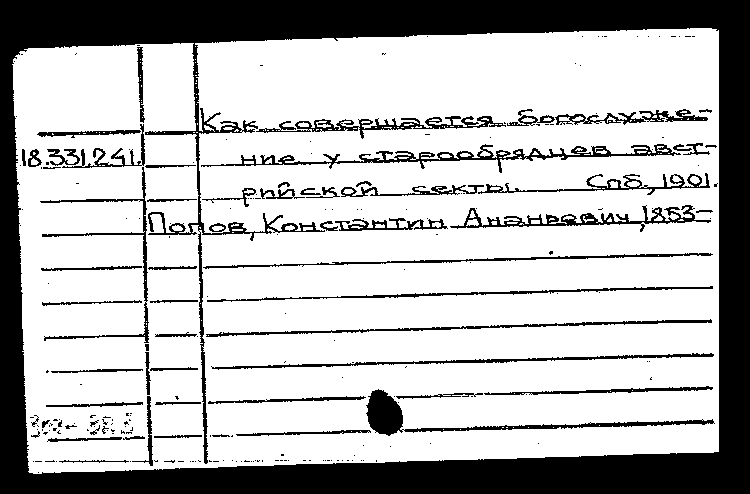 Как совершается богослуже-
18.331.241. ние у старообрядцев авст-
рийской секты. Спб., 1901.
Попов, Константин Ананьевич, 1853-